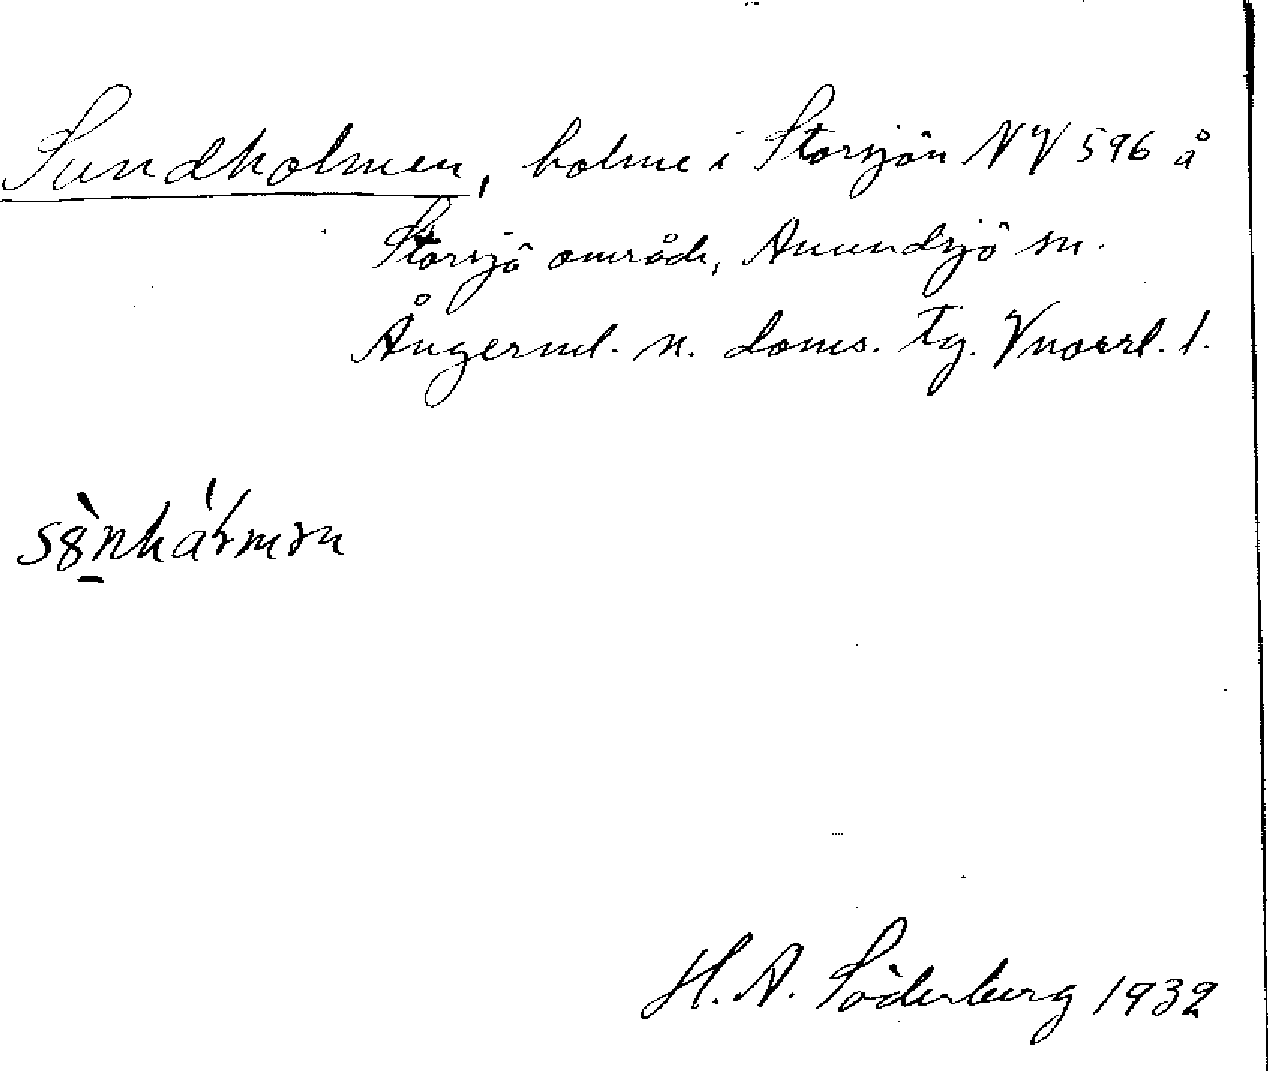 Sundholmen, holme i Storsjön NV 596 å
Storsjö område, Anundsjö sn.
Ångerml. n. doms. tg. Vnorrl. l.
H. A. Söderberg 1932